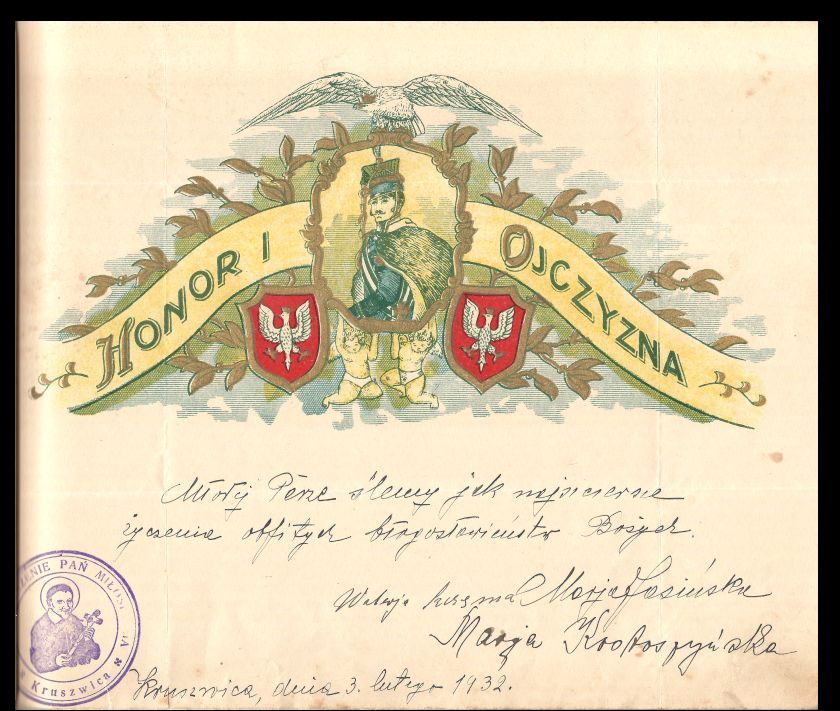 HONOR I OJCZYZNA
Młodej Parze ślemy jak najszczersze
życzenia obfitych błogosławieństw Bożych.
Marja Jasińska
Marja
ZENIE PAŃ MIŁOS
Kruszwica
Kruszwica, dnia 3. lutego 1932.